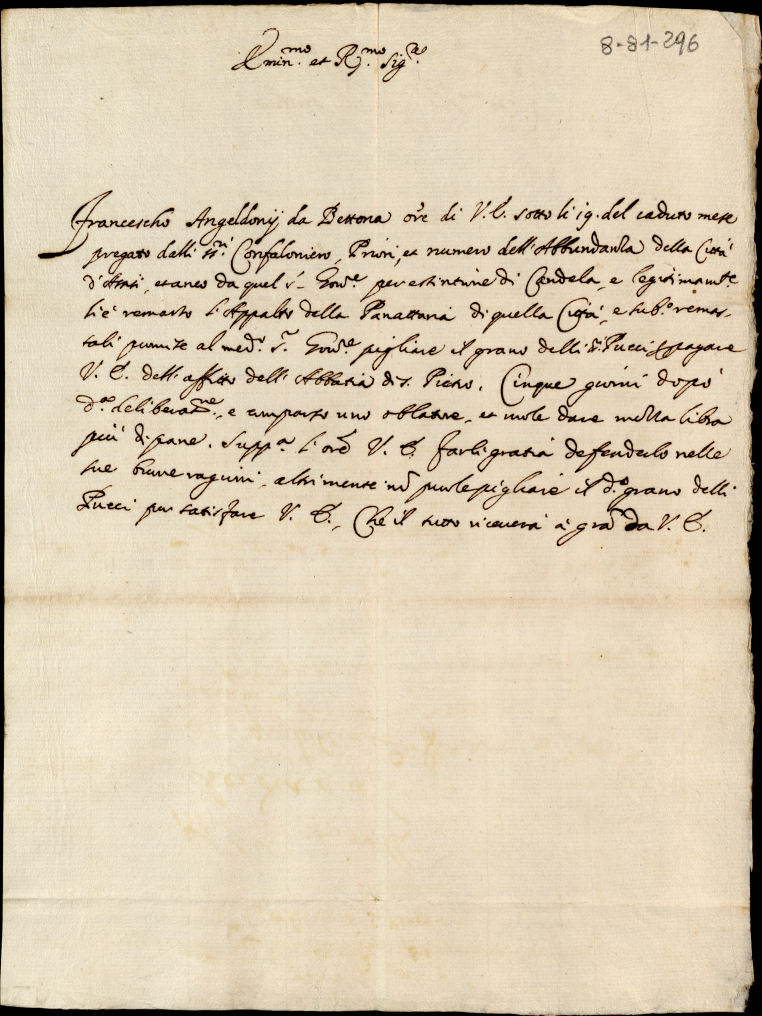 8-81-296
Emin.mo et R.mo Sig.re
Francescho Angeldonij da Bettona ore di V. E. sotto li 19. del caduto mese
pregato dalli ss.ri Confaloniero, Priori, et numero dell'Abbundanza della Città
d'Assisi, et anco da quel s.r Gov.re per estintione di Candela, e legitimam.te
li è remasto l'Appalto della Panattaria di quella Città, e sub.o remas-
tali permise al med.o s.r Gov.re pigliare il grano delli ss.ri Pucci pagare
V. E. dell'affitto dell'Abbatia di S. Pietro. Cinque giorni dopo
d.a deliberat.ne, e comparso uno oblatore, et vuole dare mezza libra
più di pane. Supp.a l'ore V. E. farli gratia defenderlo nelle
sue buone ragioni, altrimente nò puole pigliare il d.o grano delli
Pucci per satisfare V. E., Che il tutto riceverà à gra da V. E.